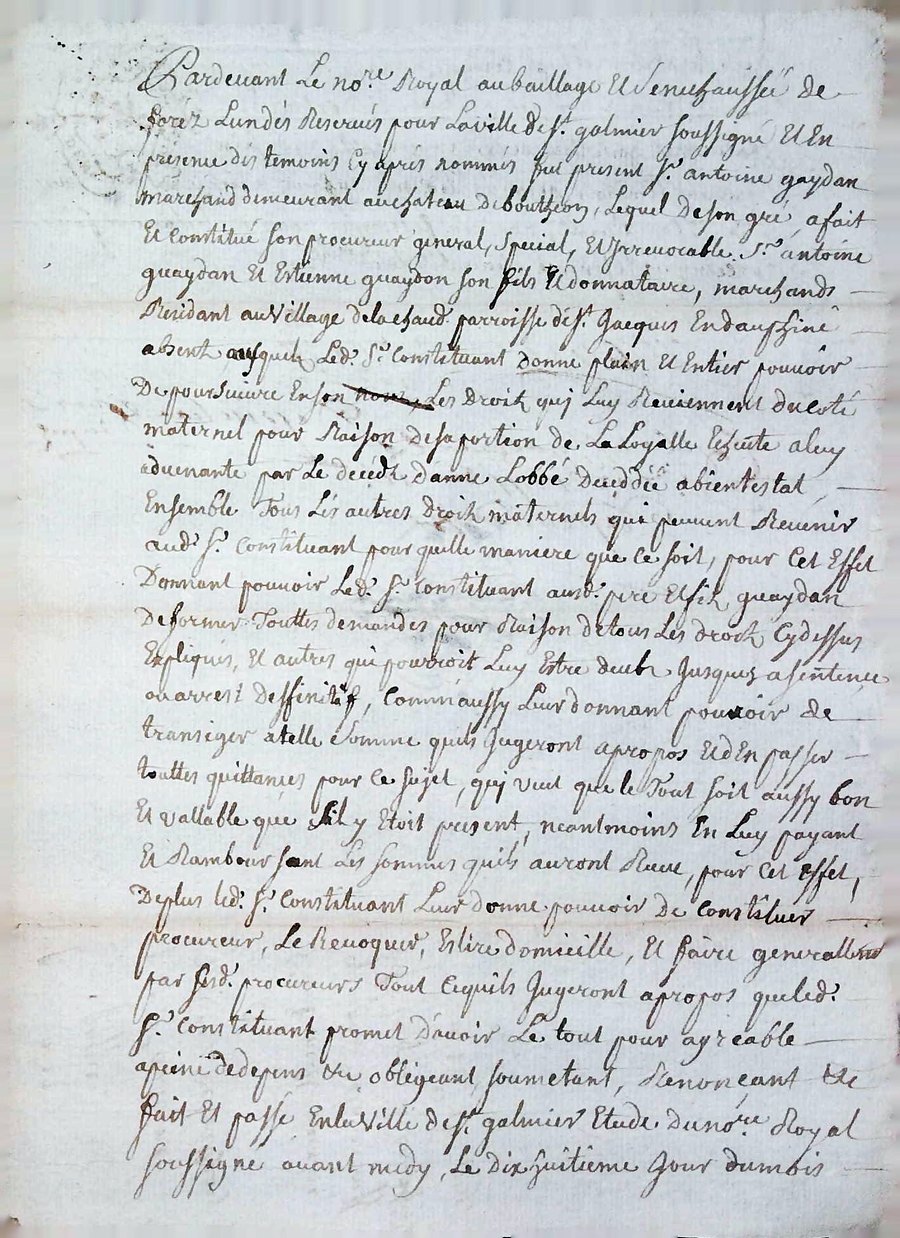 Pardevant Le no.re Royal au baillage Et Senechaussée de
forez Lundés Reservés pour La ville de St. galmier soussigné Et En
presence des temoins Cy aprés nommés fut present Sr. antoine gaydan
marchand demeurant au chateau de boutheon, Lequel de son gré a fait
Et Constitué son procureur general, special, Et Irrevocable Sr. antoine
guaydan Et Estienne guaydon son fils Et donnataire, marchands
Residant au Village de la chaud parroisse de St. Jacques En dauphiné
absents ausquels Led. Sr. Constituant donne plain Et Entier pouvoir
De poursuivre En son nom, Les Droits quj Luy Reviennent du coté
maternel pour Raison de sa portion de La Loyalle Echute a luy
advenante par Le decéds d'anne Lobbé Deceddée abientestat,
Ensemble Tous Lés autres droits maternels qui peuvent Revenir
aud. Sr. Constituant pour quelle maniere que Ce soit, pour Cet Effet
Donnant pouvoir Led. Sr. Constituant ausd. pere Et fils guaydan
De former Touttes demandes pour Raison de tous Les droits Cy dessus
Expliqués, Et autres qui pourroit Luy Estre deubt Jusques a sentence
ou arrest deffinitif, Comm'aussy Leur donnant pouvoir de
transiger a telle somme quils Jugeront apropos Et d'En passer
touttes quittances pour Ce sujet, quj veut que le Tout soit aussy bon
Et vallable que s'il y Etoit present, neantmoins En Luy payant
Et Rambourssant Les sommes quils auront Reçue, pour Cet Effet,
De plus led. Sr. Constituant Leur donne pouvoir De Constituer
procureur, Le Revoquer, Eslire domicille, Et faire generallem
par sesd. procureurs Tout Ce quils Jugeront apropos que led.
Sr. Constituant promet d'avoir Le tout pour agreable
a peine de depens &c obligeant, soumetant, Renonçant &c
fait Et passé En la Ville de St. galmier Etude du no.re Royal
soussigne avant midy, Le Dix huitieme Jour du mois